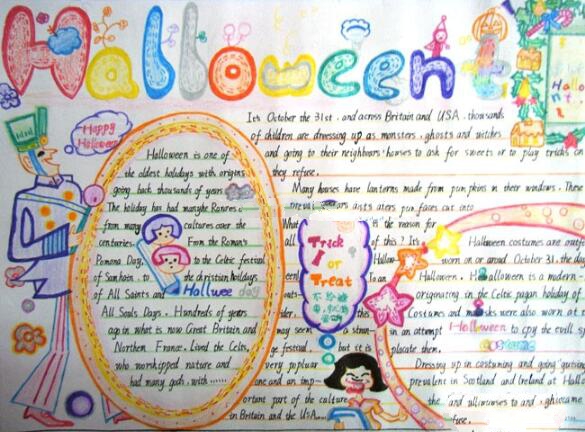 Halloween
Happy
Hallowee
Hallo
It's October the 31st, and across Britain and USA, thousands
of children are dressing up as monsters, ghosts and witches
and going to their neighbours' houses to ask for sweets or to play tricks on
they refuse.
Many houses have lanterns made from pumpkins in their windows. These
faces cut into
What is the reason for
all of this? It's
Hallow
Halloween is one of
the oldest holidays with origins
going back thousands of years
The holiday has had many
from many cultures over the
centuries. From the Roman's
Pomona Day, to the Celtic festival
of Samhain, to the christian holidays
of All Saints and
All Souls Days. Hundreds of years
again in what is now Great Britain and
Northern France. Lived the Celts.
who worshipped nature and
had many gods, with ......
Hallwee day
Trick
or
Treat
不给糖
may seem a stran-
ge festival, but it is
very popluar
one and an imp-
ortant part of the culture
in Britain and the USA.....
Halloween costumes are
worn on or around October 31, the day
Halloween. Halloween is a modern-
originating in the Celtic pagan holiday of
Costumes and masks were also worn at
in an attempt to cpy the evil sp
placate them.
Halloween
costume
Dressing up in costuming and going "guising
prevalent in Scotland and Ireland at Hall